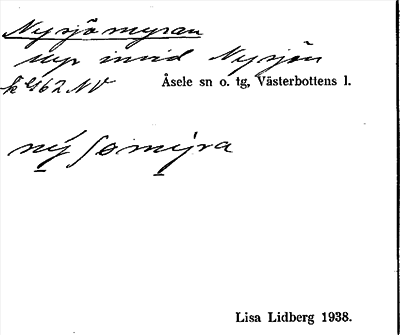 Nysjömyran
myr invid Nysjön
k 462 NV Åsele sn o. tg, Västerbottens l.
nỵ́ ʃomỵ̀ra
Lisa Lidberg 1938.